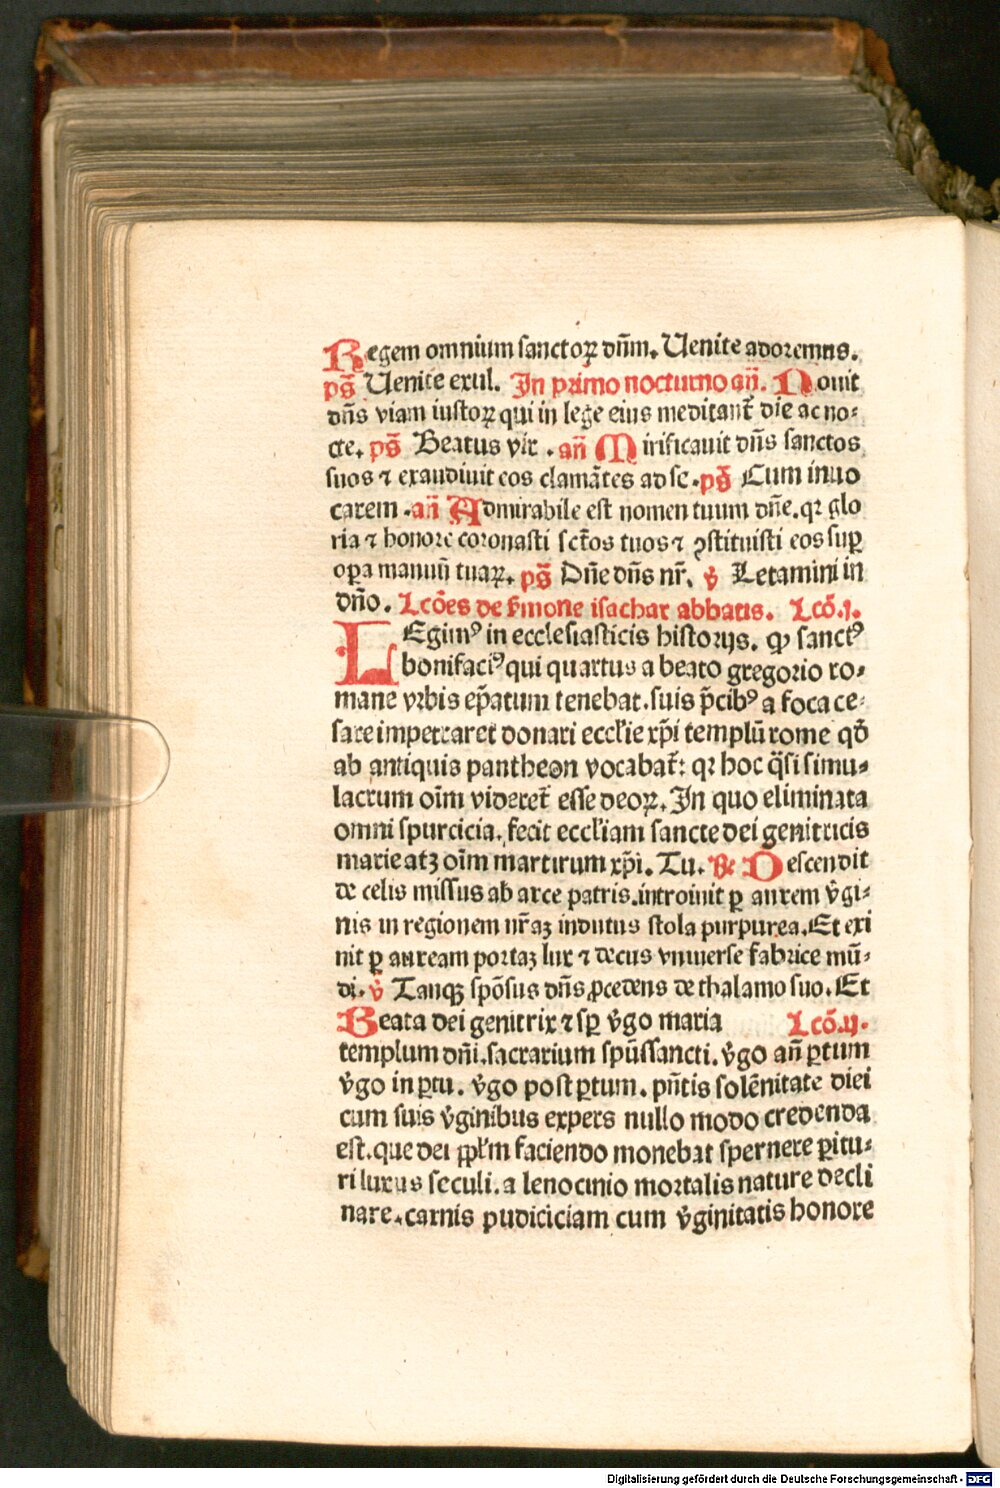 Regem omnium sanctoꝝ dn̄m. Uenite adoremus.
ps̄ Uenite exul. In primo nocturno an̄. Nouit
dn̄s viam iustoꝝ qui in lege eius meditant᷑ die ac no⸗
cte. ps̄ Beatus vir . an̄ Mirificauit dn̄s sanctos
suos ⁊ exaudiuit eos clamātes ad se. ps̄ Cum inuo
carem . an̄ Admirabile est nomen tuum dn̄e. qꝛ glo
ria ⁊ honore coronasti sct̄os tuos ⁊ ꝯstituisti eos suꝑ
oꝑa manuū tuaꝝ. ps̄ Dn̄e dn̄s nr̄. v̄ Letamini in
dn̄o. Lcōes de s̄mone isachar abbatis. Lcō.j.
LEgimꝰ in ecclesiasticis historijs. ꝙ sanctꝰ
bonifaciꝰ qui quartus a beato gregorio ro⸗
mane vrbis ep̄atum tenebat. suis p̄cibꝰ a foca ce⸗
sare impetraret donari eccl̄ie xp̄i templū rome qd̄
ab antiquis pantheon vocabat᷑: qꝛ hoc q̄si simu⸗
lacrum oīm videret᷑ esse deoꝝ. In quo eliminata
omni spurcicia. fecit eccl̄iam sancte dei genitricis
marie atꝫ oīm martirum xp̄i. Tu. ℟ Descendit
de celis missus ab arce patris. introiuit ꝑ aurem v̄gi⸗
nis in regionem nr̄aꝫ indutus stola purpurea. Et exi
uit ꝑ auream portaꝫ lux ⁊ decus vniuerse fabrice mū⸗
di. v̄ Tanqꝫ spōsus dn̄s ꝓcedens de thalamo suo. Et
Beata dei genitrix ⁊ sꝑ v̄go maria Lcō.ij.
templum dn̄i. sacrarium spūssancti. v̄go an̄ ꝑtum
v̄go in ꝑtu. v̄go post ꝑtum. pn̄tis solēnitate diei
cum suis v̄ginibus expers nullo modo credenda
est. que dei ꝓpl̄m faciendo monebat spernere ꝑitu⸗
ri luxus seculi. a lenocinio mortalis nature decli
nare. carnis pudiciciam cum v̄ginitatis honore
Digitalisierung gefördert durch die Deutsche Forschungsgemeinschaft - DFG